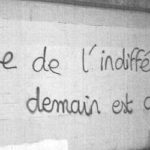 e de l'indiffé
demain est